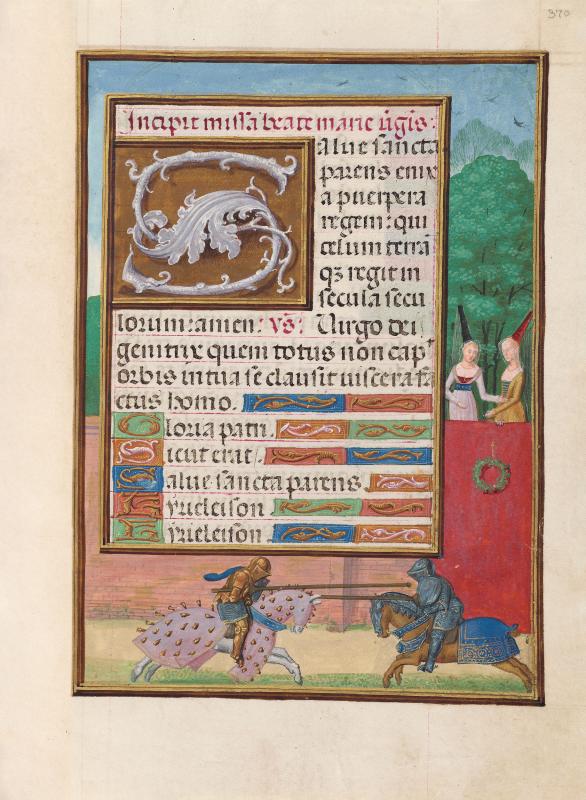 370
Incipit missa beate marie v̄gis:
Salue sancta
parens enix
a puerpera
regem: qui
celum terrā
qꝫ regit in
secula secu
lorum: amen: vs: Virgo dei
genitrix quem totus non cap
orbis in tua se clausit uiscera fa
ctus homo.
Gloria patri.
Sicut erat
Salue sancta parens
Kyrieleison
Kyrieleison